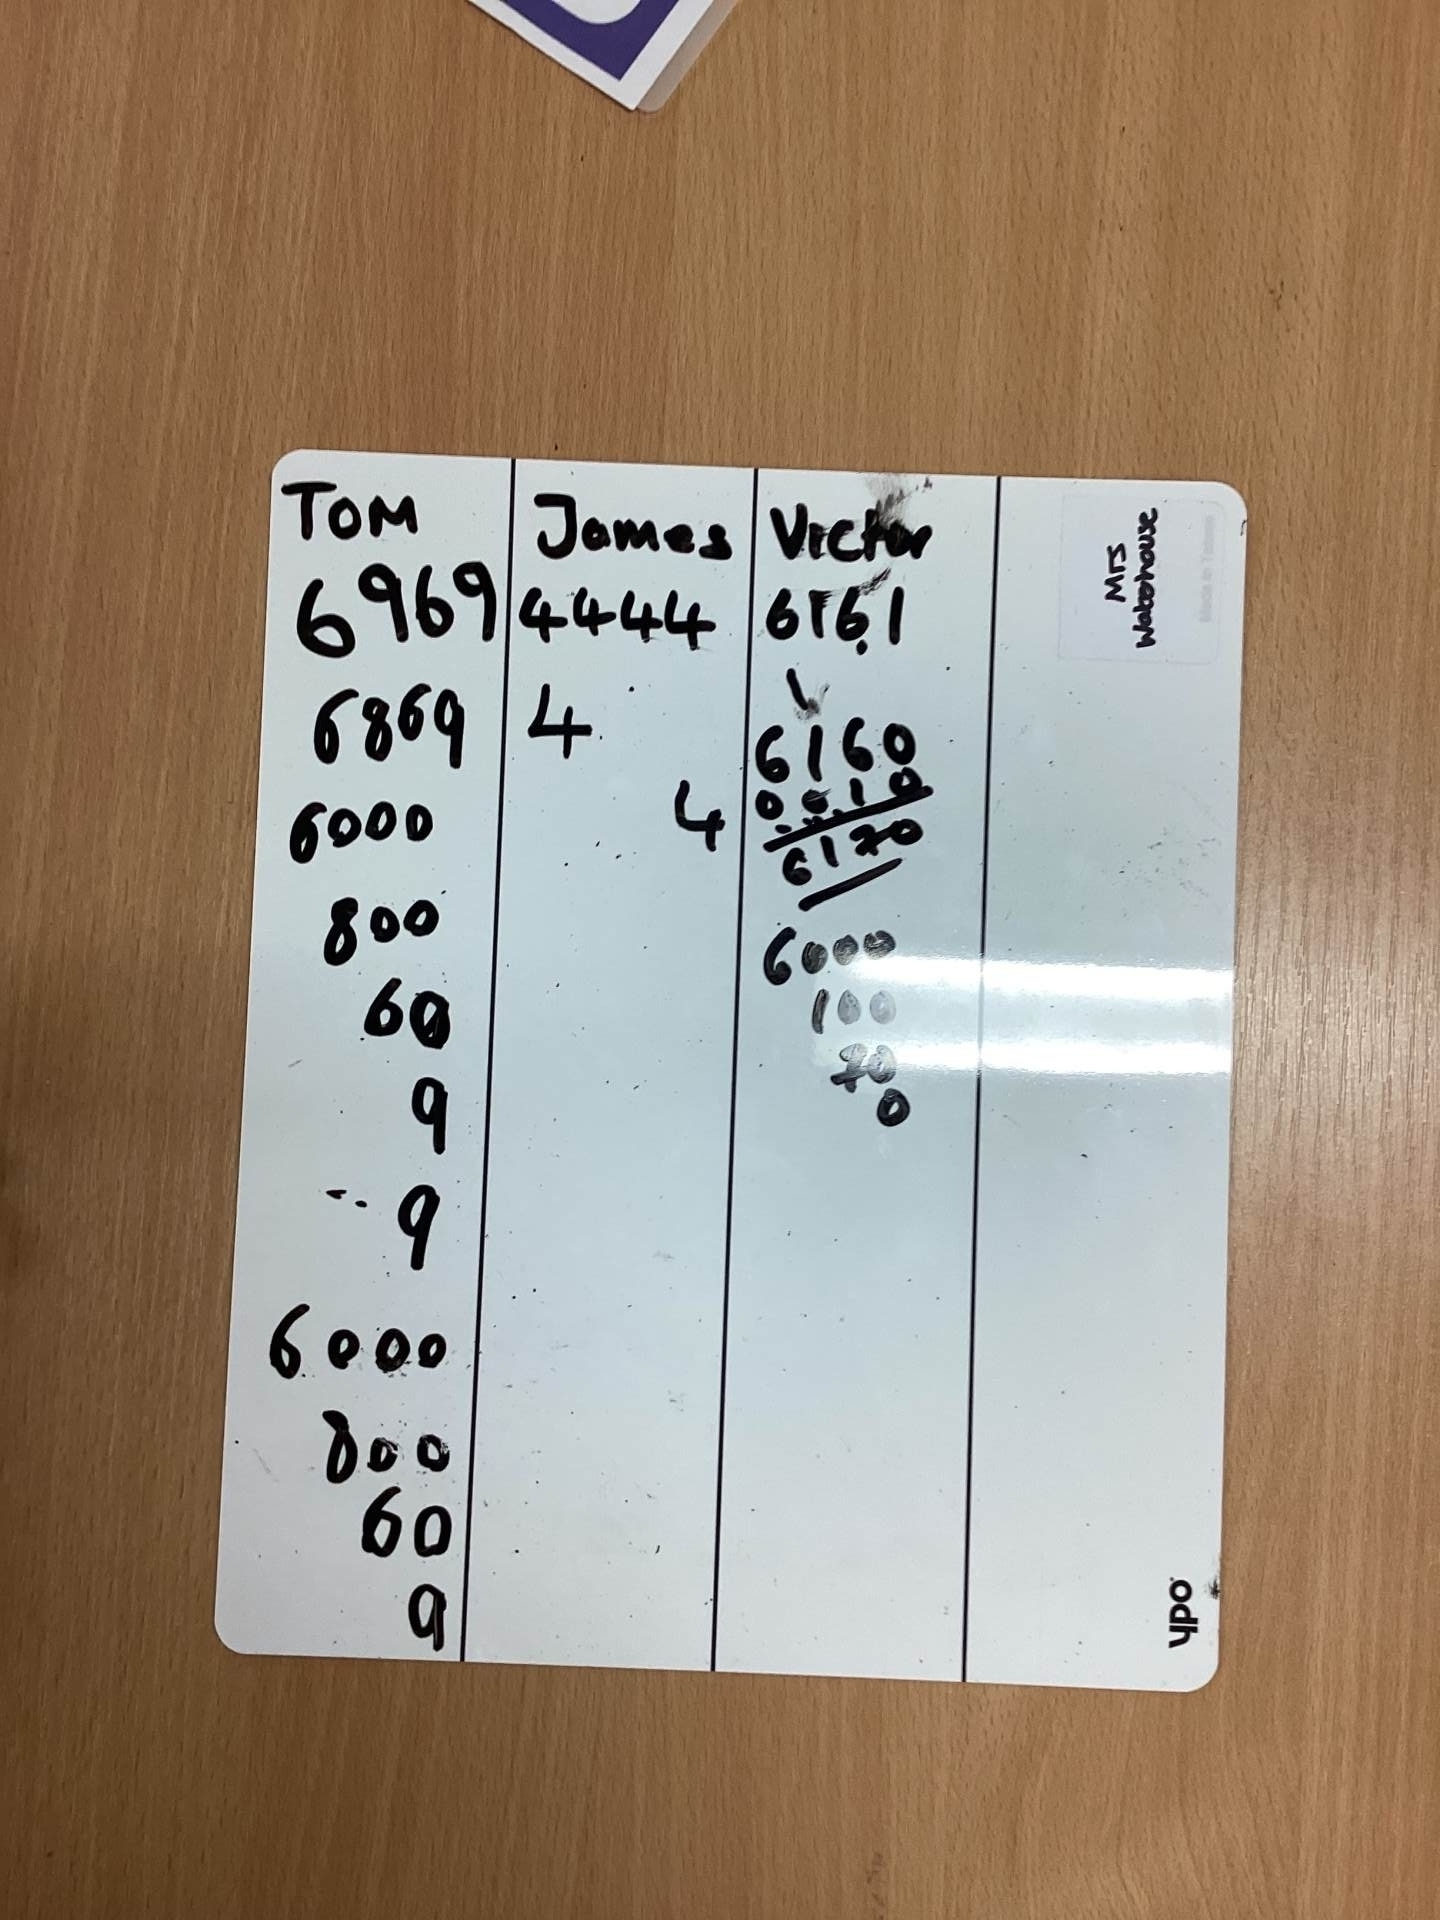 TOM
6969
6869
6000
800
60
9
9
6000
800
60
9
James
4444
4
4
Victor
6161
6160
0010
6170
6000
100
70
0
Mrs
ypo